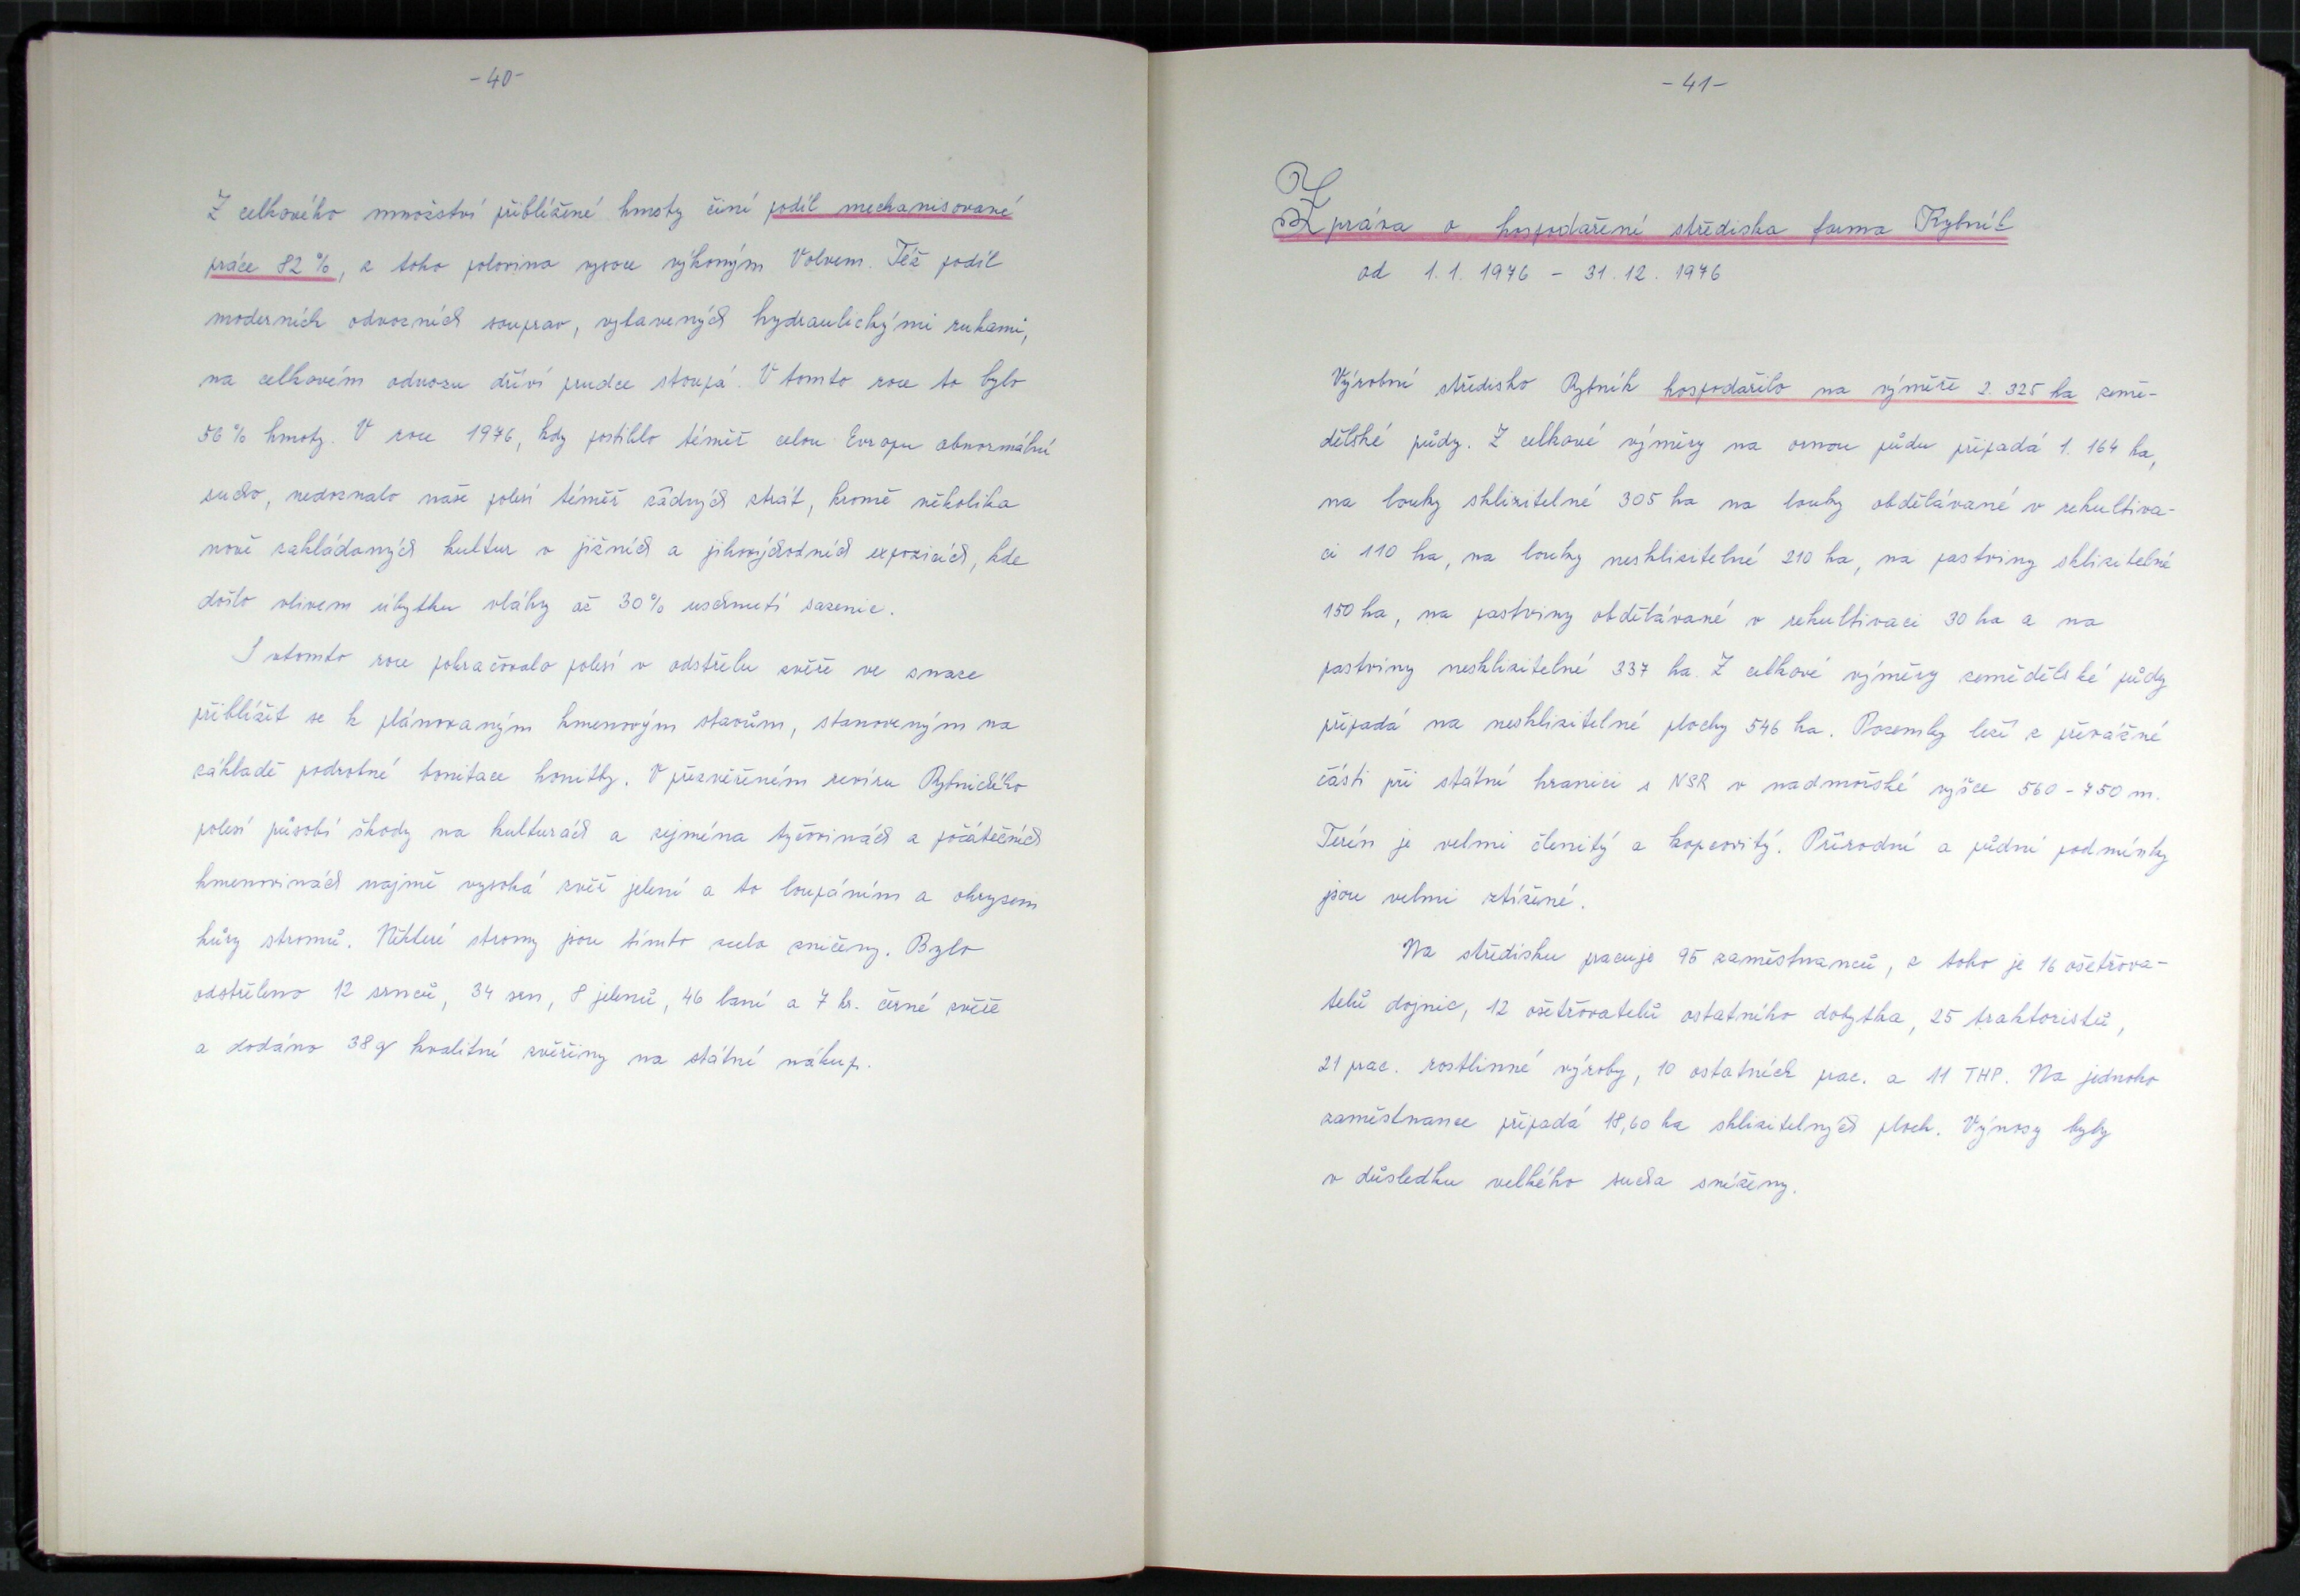 -40-
Z celkového množství přiblížené hmoty činí podíl mechanisované
práce 82%, z toho polovina vysoce výkoným Volvem. Též podíl
moderních odvozních souprav, vybavených hydraulickými rukami,
na celkovém odvozu dříví prudce stoupá. V tomto roce to bylo
56% hmoty. V roce 1976, kdy postihlo téměř celou Evropu abnormální
sucho, nedoznalo naše polesí téměř žádných ztrát, kromě několika
nově zakládaných kultur v jižních a jihovýchodních expozicích, kde
došlo vlivem úbytku vláhy až 30% uschnutí sazenic.
I vtomto roce pokračovalo polesí v odstřelu zvěře ve snaze
přiblížit se k plánovaným kmenovým stavům, stanoveným na
základě podrobné bonitace honitby. V přezvěřeném revíru Rybnického
polesí působí škody na kulturách a zejména tyčovinách a počátečních
kmenovinách najmě vysoká zvěř jelení a to loupáním a ohryzem
kůry stromů. Některé stromy jsou tímto zcela zničeny. Bylo
odstřeleno 12 srnců, 34 srn, 8 jelenů, 46 laní a 7 ks. černé zvěře
a dodáno 38q kvalitní zvěřiny na státní nákup.
-41-
Zpráva o hospodaření střediska farma Rybník
od 1.1. 1976 - 31.12. 1976
Výrobní středisko Rybník hospodařilo na výměře 2.325 ha země-
dělské půdy. Z celkové výměry na ornou půdu připadá 1.164 ha,
na louky sklizitelné 305 ha na louky obdělávané v rekultiva-
ci 110 ha, na louky nesklizitelné 210 ha, na pastviny sklizitelné
150 ha, na pastviny obdělávané v rekultivaci 30 ha a na
pastviny nesklizitelné 337 ha. Z celkové výměry zemědělské půdy
připadá na nesklizitelné plochy 546 ha. Pozemky leží z převážné
části při státní hranici s NSR v nadmořské výšce 560-750 m.
Terén je velmi členitý a kopcovitý. Přírodní a půdní podmínky
jsou velmi ztížené.
Na středisku pracuje 95 zaměstnanců, z toho je 16 ošetřova-
telů dojnic, 12 ošetřovatelů ostatního dobytka, 25 traktoristů,
21 prac. rostlinné výroby, 10 ostatních prac. a 11 THP. Na jednoho
zaměstnance připadá 18,60 ha sklizitelných ploch. Výnosy byly
v důsledku velkého sucha sníženy.